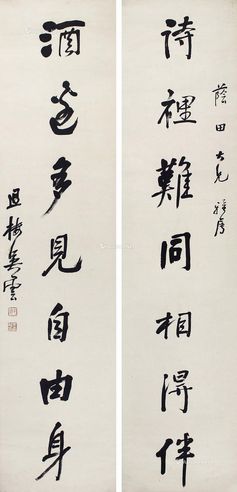 蔭田大兄雅属
詩裡難同相得伴
酒邊多見自由身
退樓吳雲